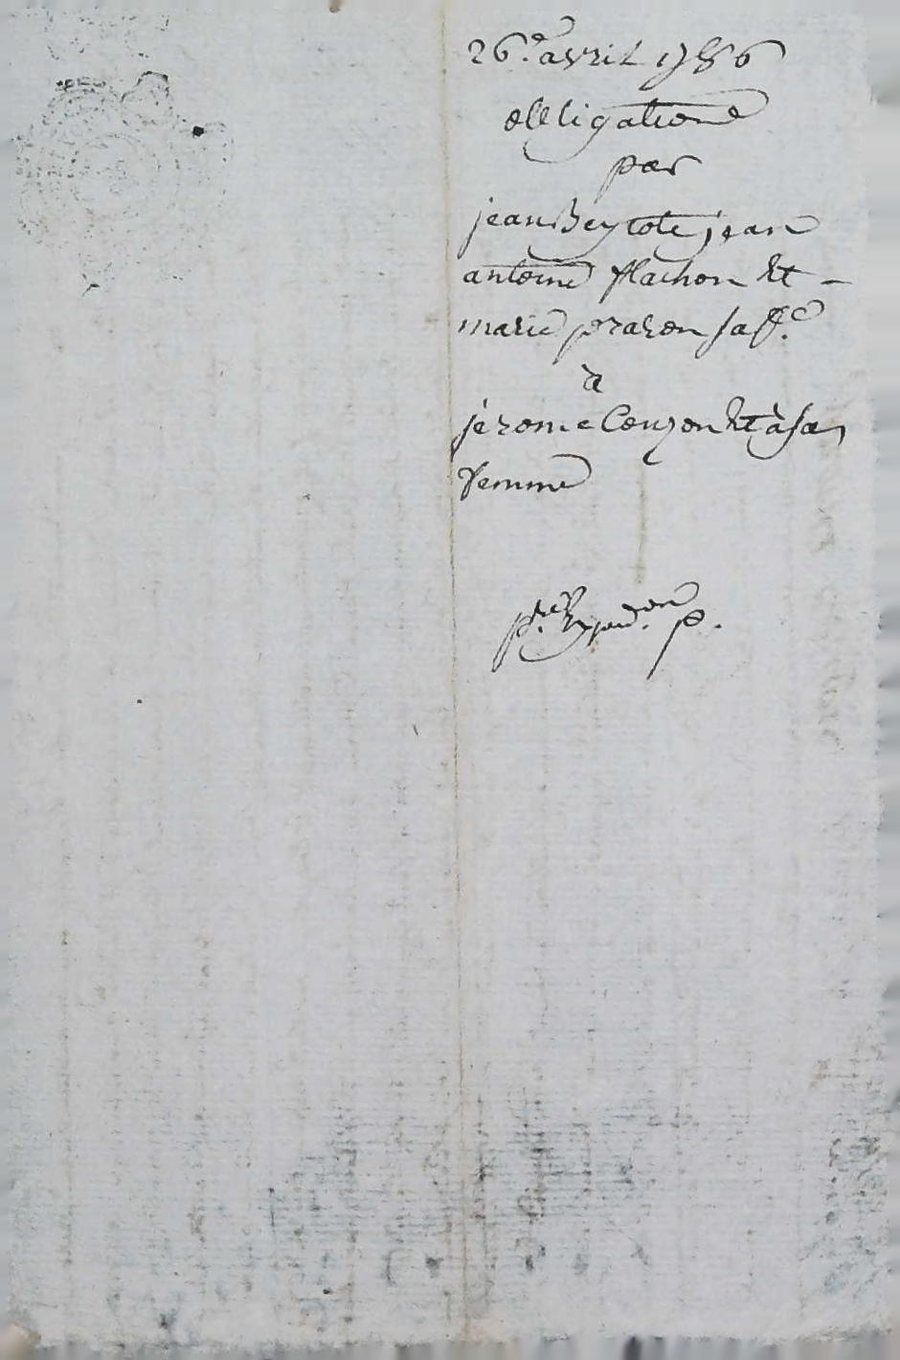 26.e avril 1786
obligation
par
jean Beytote, jean
antoine flachon Et -
marie prazon sa f.e
à
jerome Couzon Et à sa
femme
p.